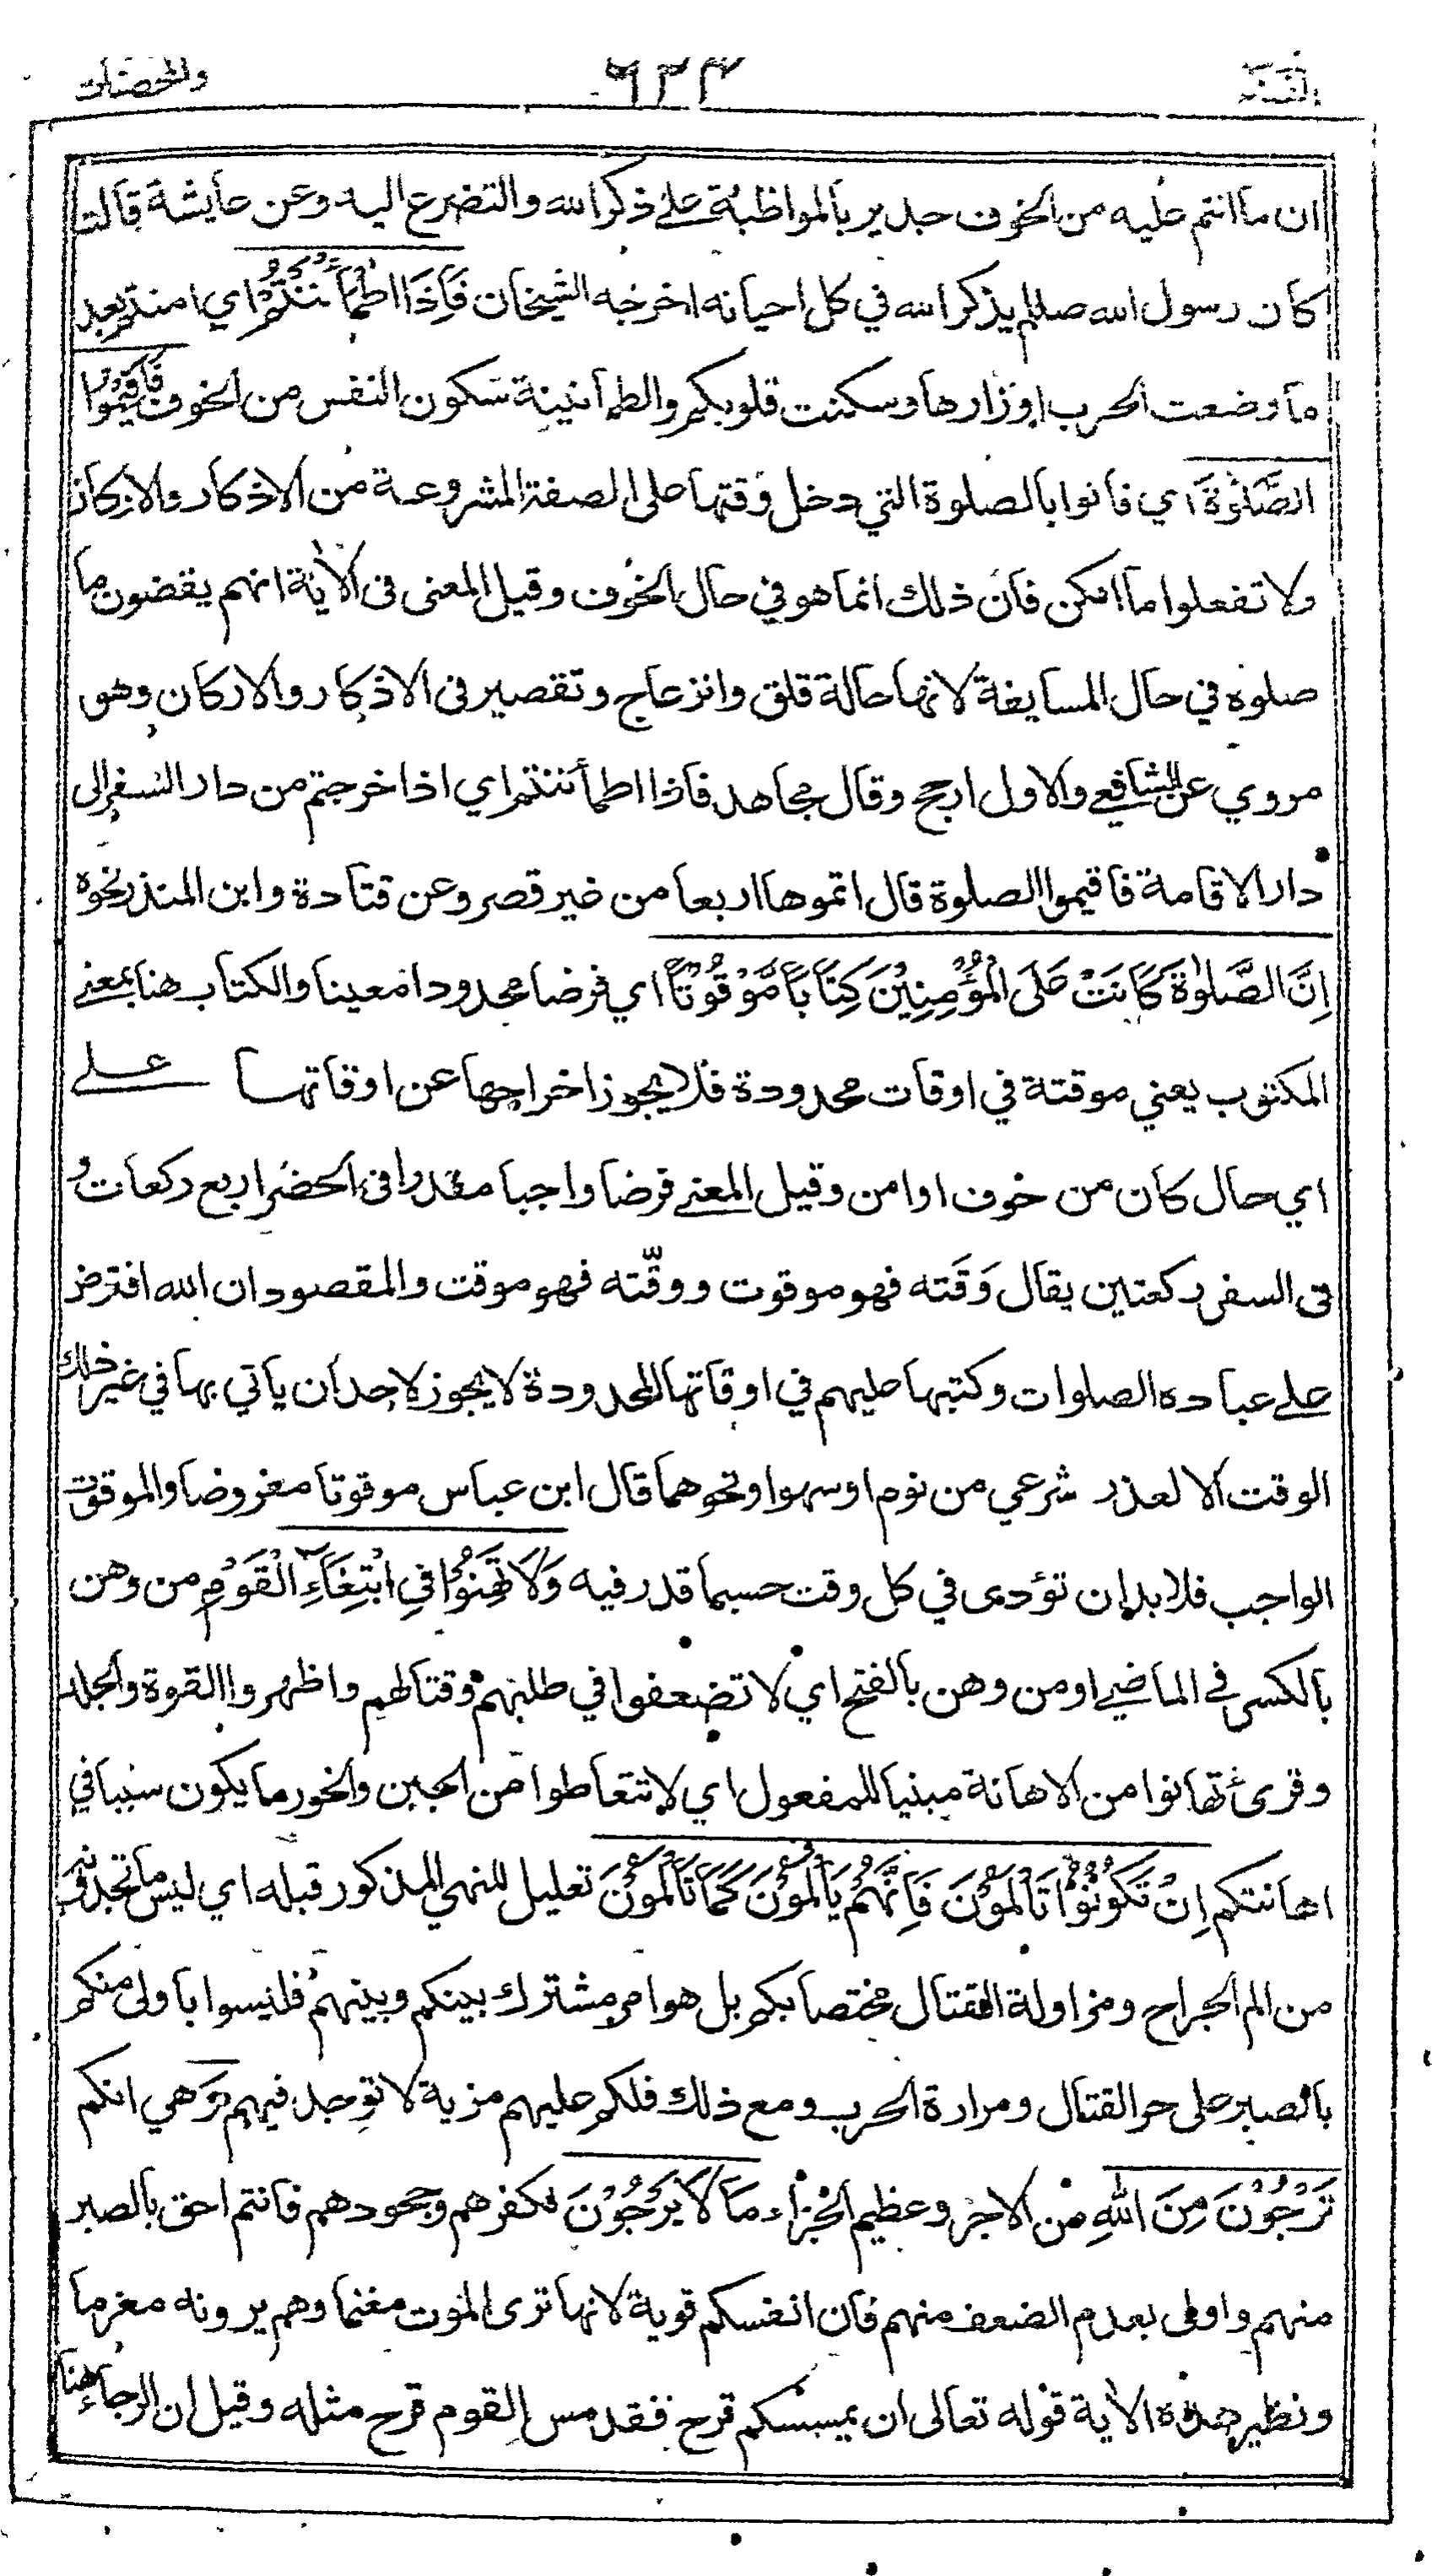 النسآء ٦٣٤ والمحصنات
ان ما انتم عليه من الخوف جدير بالمواظبة على ذكر الله والتضرع اليه وعن عايشة قالت
كان رسول الله صللم يذكر الله في كل احيانه اخرجه الشيخان فَاِذَا اطْمَأْنَنْتُمْ اي امنتم بعد
ما وضعت الحرب اوزارها وسكنت قلوبكم والطمأنينة سكون النفس من الخوف فَاَقِيْمُوا
الصَّلٰوةَ اي فأتوا بالصلوة التي دخل وقتها على الصفة المشروعة من الاذكار والاركان
ولا تفعلوا ما امكن فان ذلك انما هو في حال الخوف وقيل المعنى فى الأية انهم يقضون ما
صلوه في حال المسايفة لانها حالة قلق وانزعاج وتقصير فى الاذكار والاركان وهو
مروي عن الشافعي والاول ارجح وقال مجاهد فاذا اطمأننتم اي اذا خرجتم من دار السفر الى
دار الاقامة فاقيموا الصلوة قال اتموها اربعا من غير قصر وعن قتادة وابن المنذر نحوه
اِنَّ الصَّلٰوةَ كَانَتْ عَلَى الْمُؤْمِنِيْنَ كِتَابًا مَّوْقُوْتًا اي فرضا محدودا معينا والكتاب هنا بمعنى
المكتوب يعني موقتة في اوقات محدودة فلا يجوز اخراجها عن اوقاتها على
اي حال كان من خوف او امن وقيل المعنى فرضا واجبا مقدرا فى الحضر اربع ركعات و
فى السفر ركعتين يقال وَقَته فهو موقوت ووقّته فهو موقت والمقصود ان الله افترض
على عباده الصلوات وكتبها عليهم في اوقاتها المحدودة لا يجوز لاحد ان ياتي بها في غير ذلك
الوقت الا لعذر شرعي من نوم او سهو او نحوهما قال ابن عباس موقوتا مفروضا والموقوت
الواجب فلا بد ان تؤدى في كل وقت حسبما قدر فيه وَلَا تَهِنُوْا فِي ابْتِغَآءِ الْقَوْمِ من وهن
بالكسر في الماضي او من وهن بالفتح اي لا تضعفوا في طلبهم وقتالهم واظهروا القوة والجلد
وقرئ تهانوا من الاهانة مبنيا للمفعول اي لا تتعاطوا من الجبن والخور ما يكون سببا في
اهانتكم اِنْ تَكُوْنُوْا تَأْلَمُوْنَ فَاِنَّهُمْ يَأْلَمُوْنَ كَمَا تَأْلَمُوْنَ تعليل للنهي المذكور قبله اي ليس ما تجدونه
من الم الجراح ومزاولة القتال مختصا بكم بل هو امر مشترك بينكم وبينهم فليسوا باولى منكم
بالصبر على حر القتال ومرارة الحرب ومع ذلك فلكم عليهم مزية لا توجد فيهم وَ هي انكم
تَرْجُوْنَ مِنَ اللّٰهِ من الاجر وعظيم الجزاء مَا لَا يَرْجُوْنَ لكفرهم وجحودهم فانتم احق بالصبر
منهم واولى بعدم الضعف منهم فان انفسكم قوية لانها ترى الموت مغنما وهم يرونه مغرما
ونظير هذه الأية قوله تعالى ان يمسسكم قرح فقد مس القوم قرح مثله وقيل ان الرجاء هنا